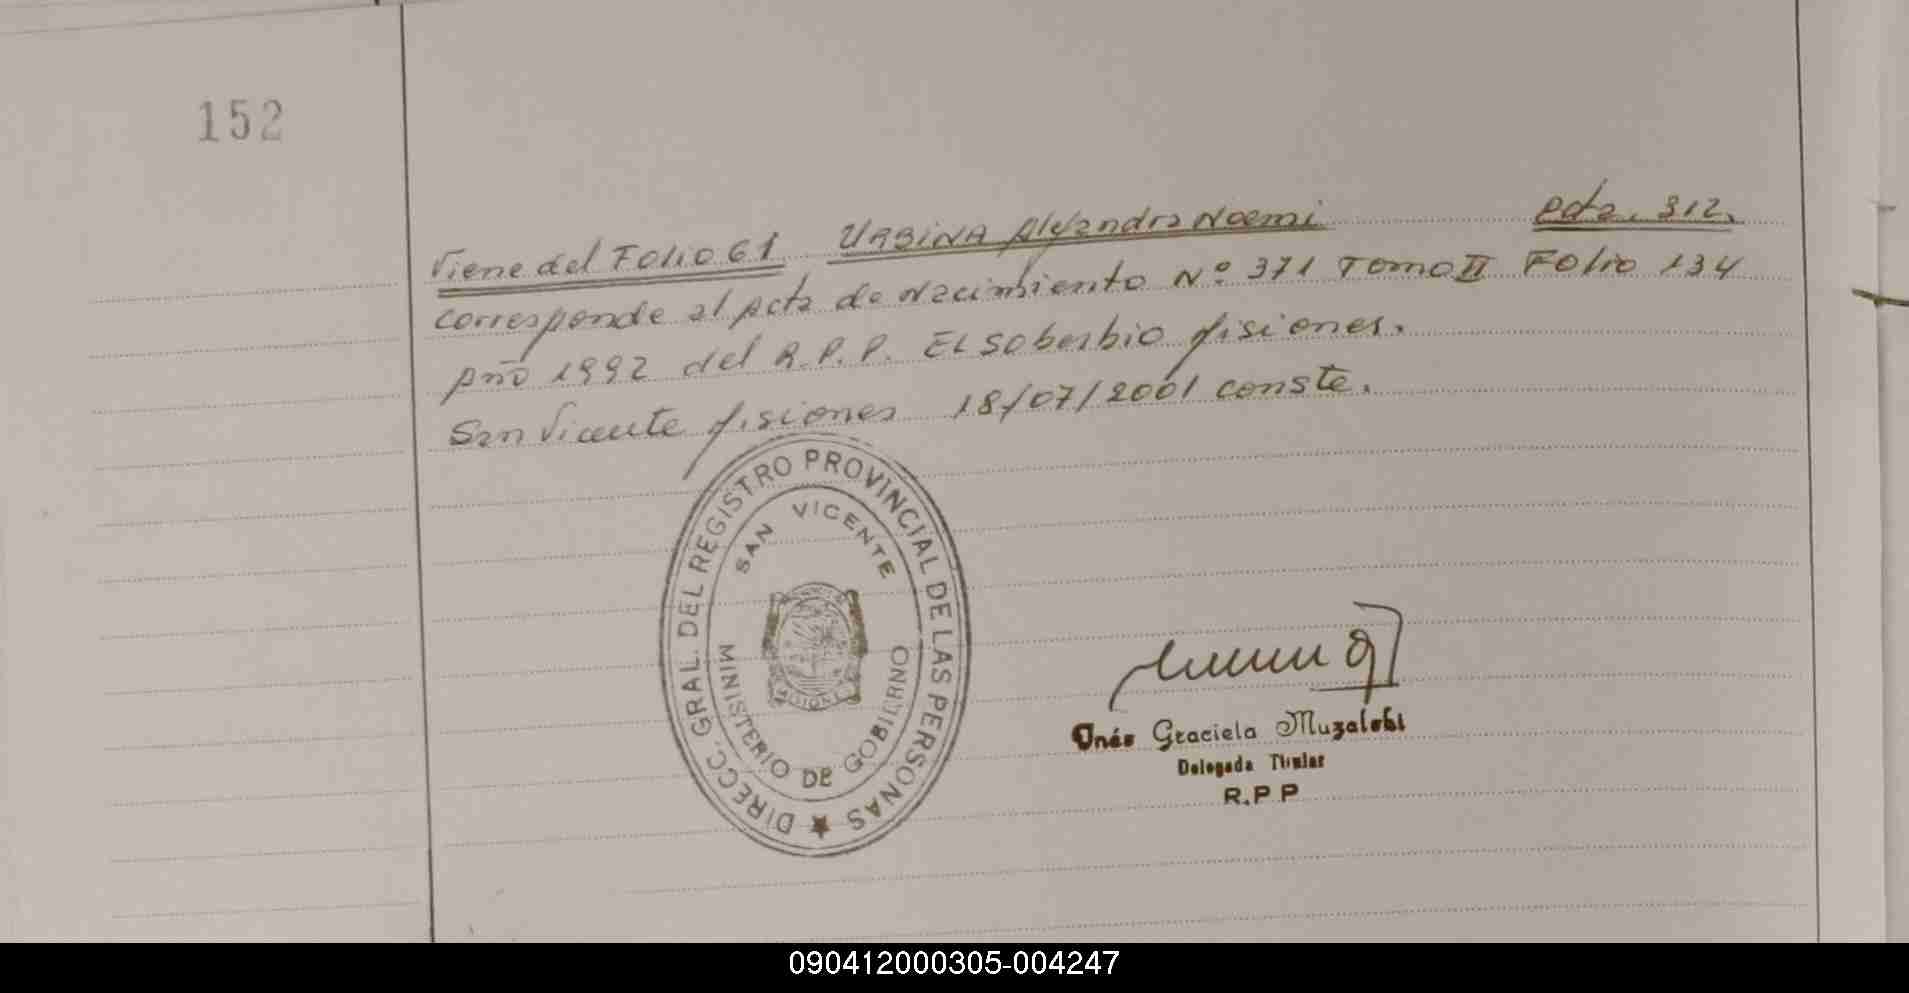 152
Viene del Folio 61 URBINA Alejandra Noemi Acta. 312.
corresponde al Acta de Nacimiento Nº 371 Tomo II Folio 134
Año 1992 del R.P.P. El Soberbio Misiones.
San Vicente Misiones 18/07/2001 conste.
DIRECC. GRAL. DEL REGISTRO PROVINCIAL DE LAS PERSONAS
SAN VICENTE
MISIONES
MINISTERIO DE GOBIERNO
Inés Graciela Muzaleski
Delegada Titular
R.P P
090412000305-004247